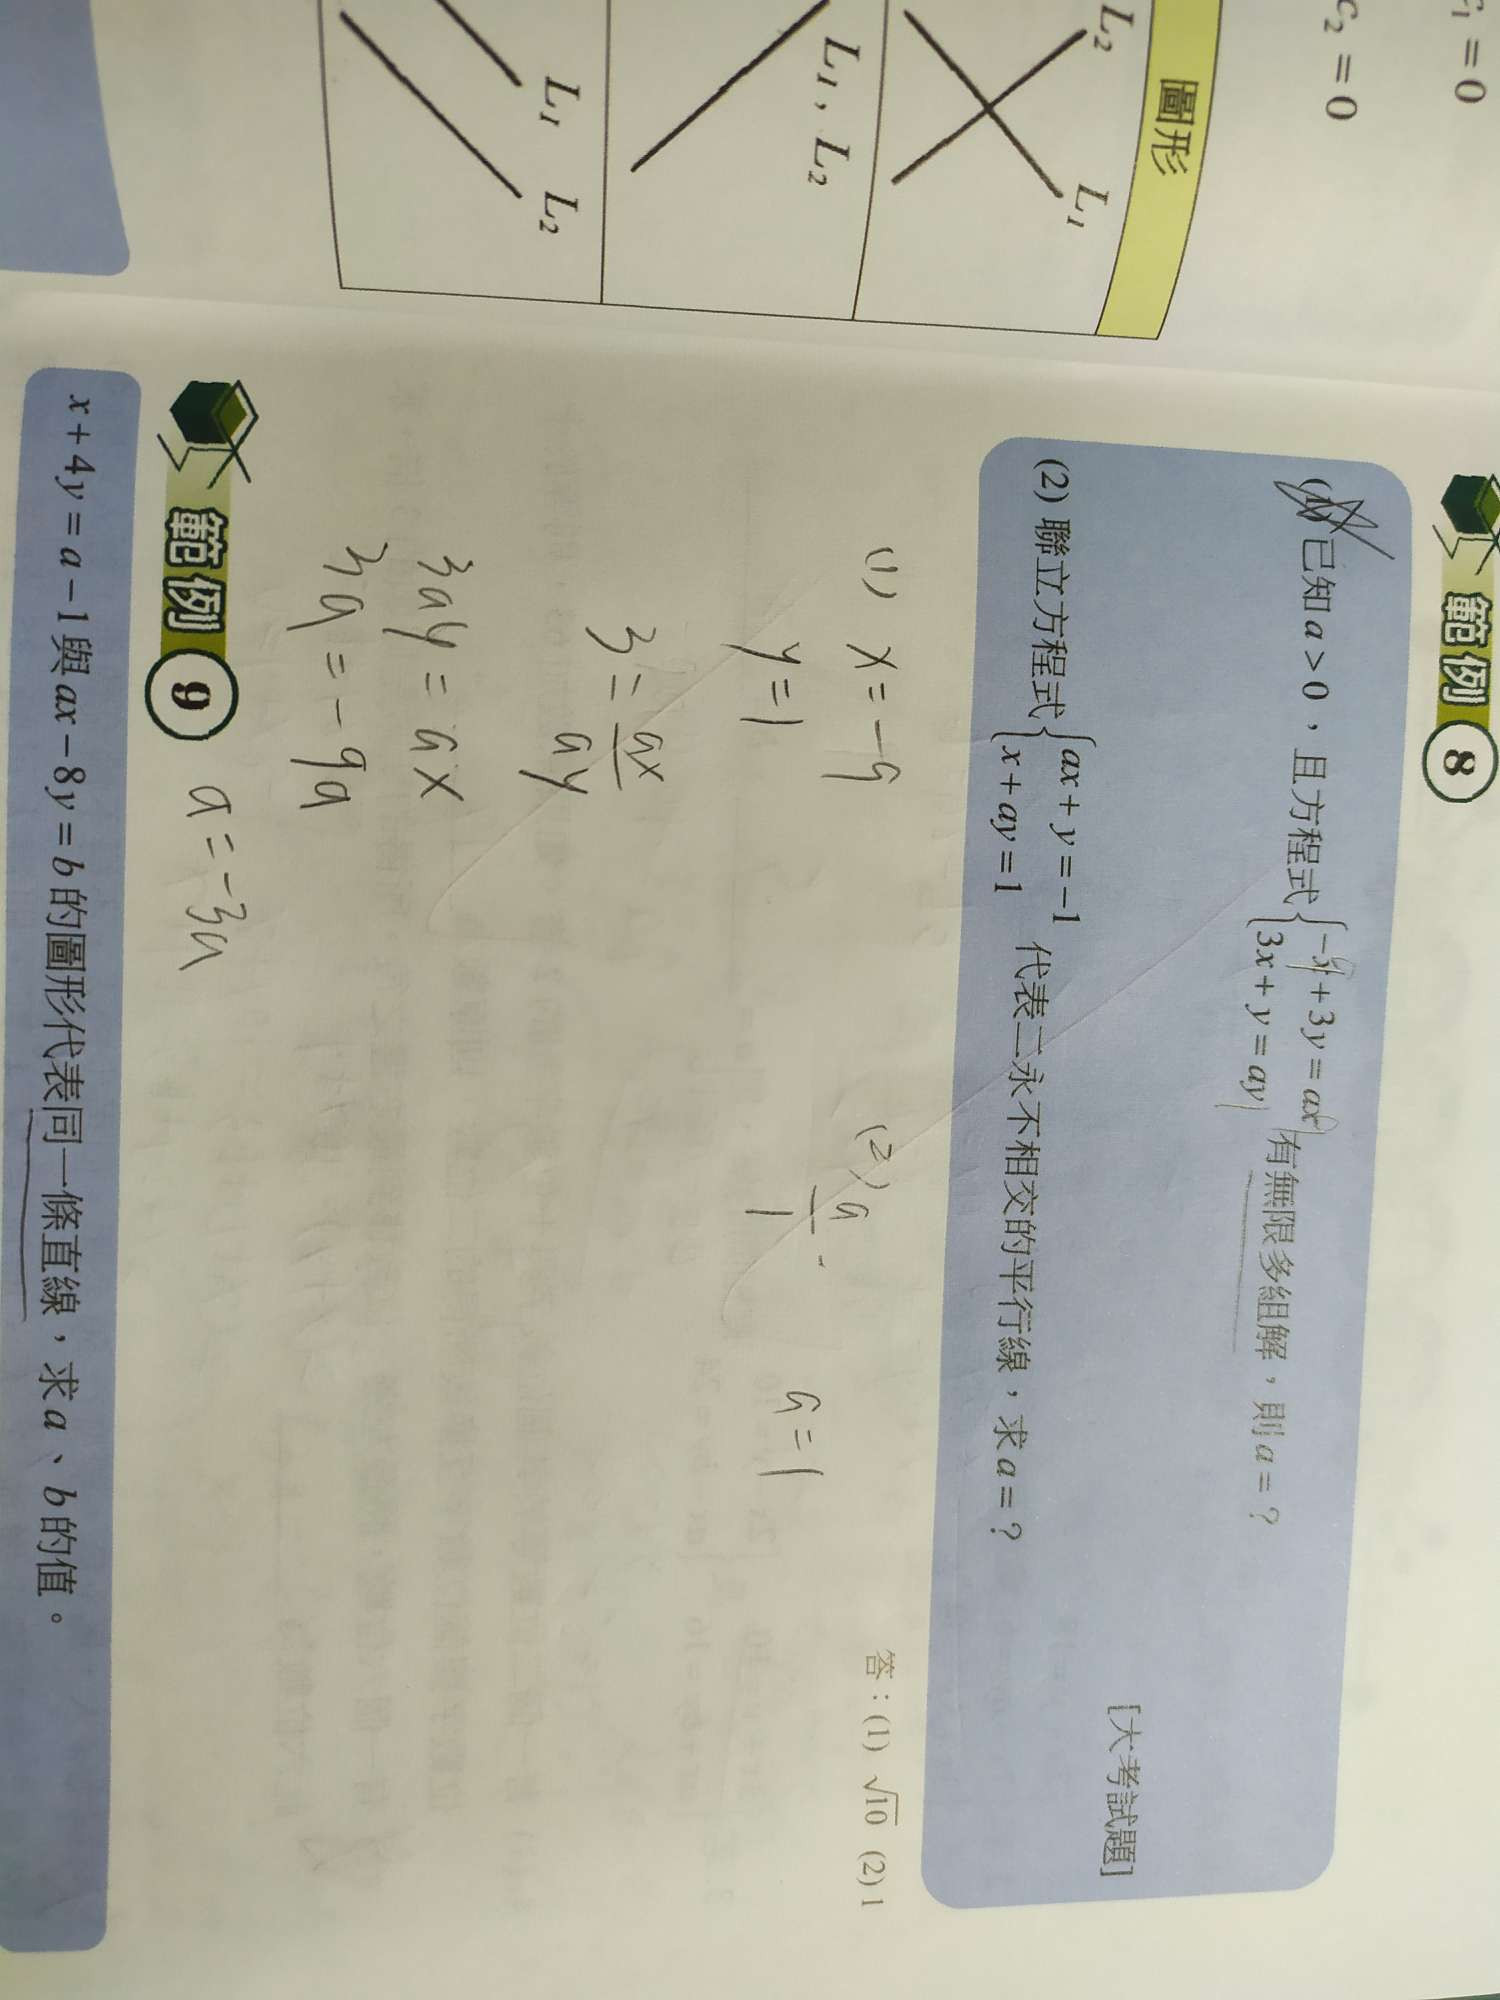 c₁ = 0
c₂ = 0
圖形
L₂ L₁
L₁, L₂
L₁ L₂
範例 8
已知 a > 0，且方程式 { -x + 3y = ax
3x + y = ay 有無限多組解，則 a = ？
[大考試題]
(2) 聯立方程式 { ax + y = -1
x + ay = 1 代表二永不相交的平行線，求 a = ？
答：(1) √10 (2) 1
(1) x = -9
y = 1
3 = ax/ay
3ay = ax
3a = -9a
a = -3a
(2) a/1
a = 1
範例 9
x + 4y = a - 1 與 ax - 8y = b 的圖形代表同一條直線，求 a、b 的值。